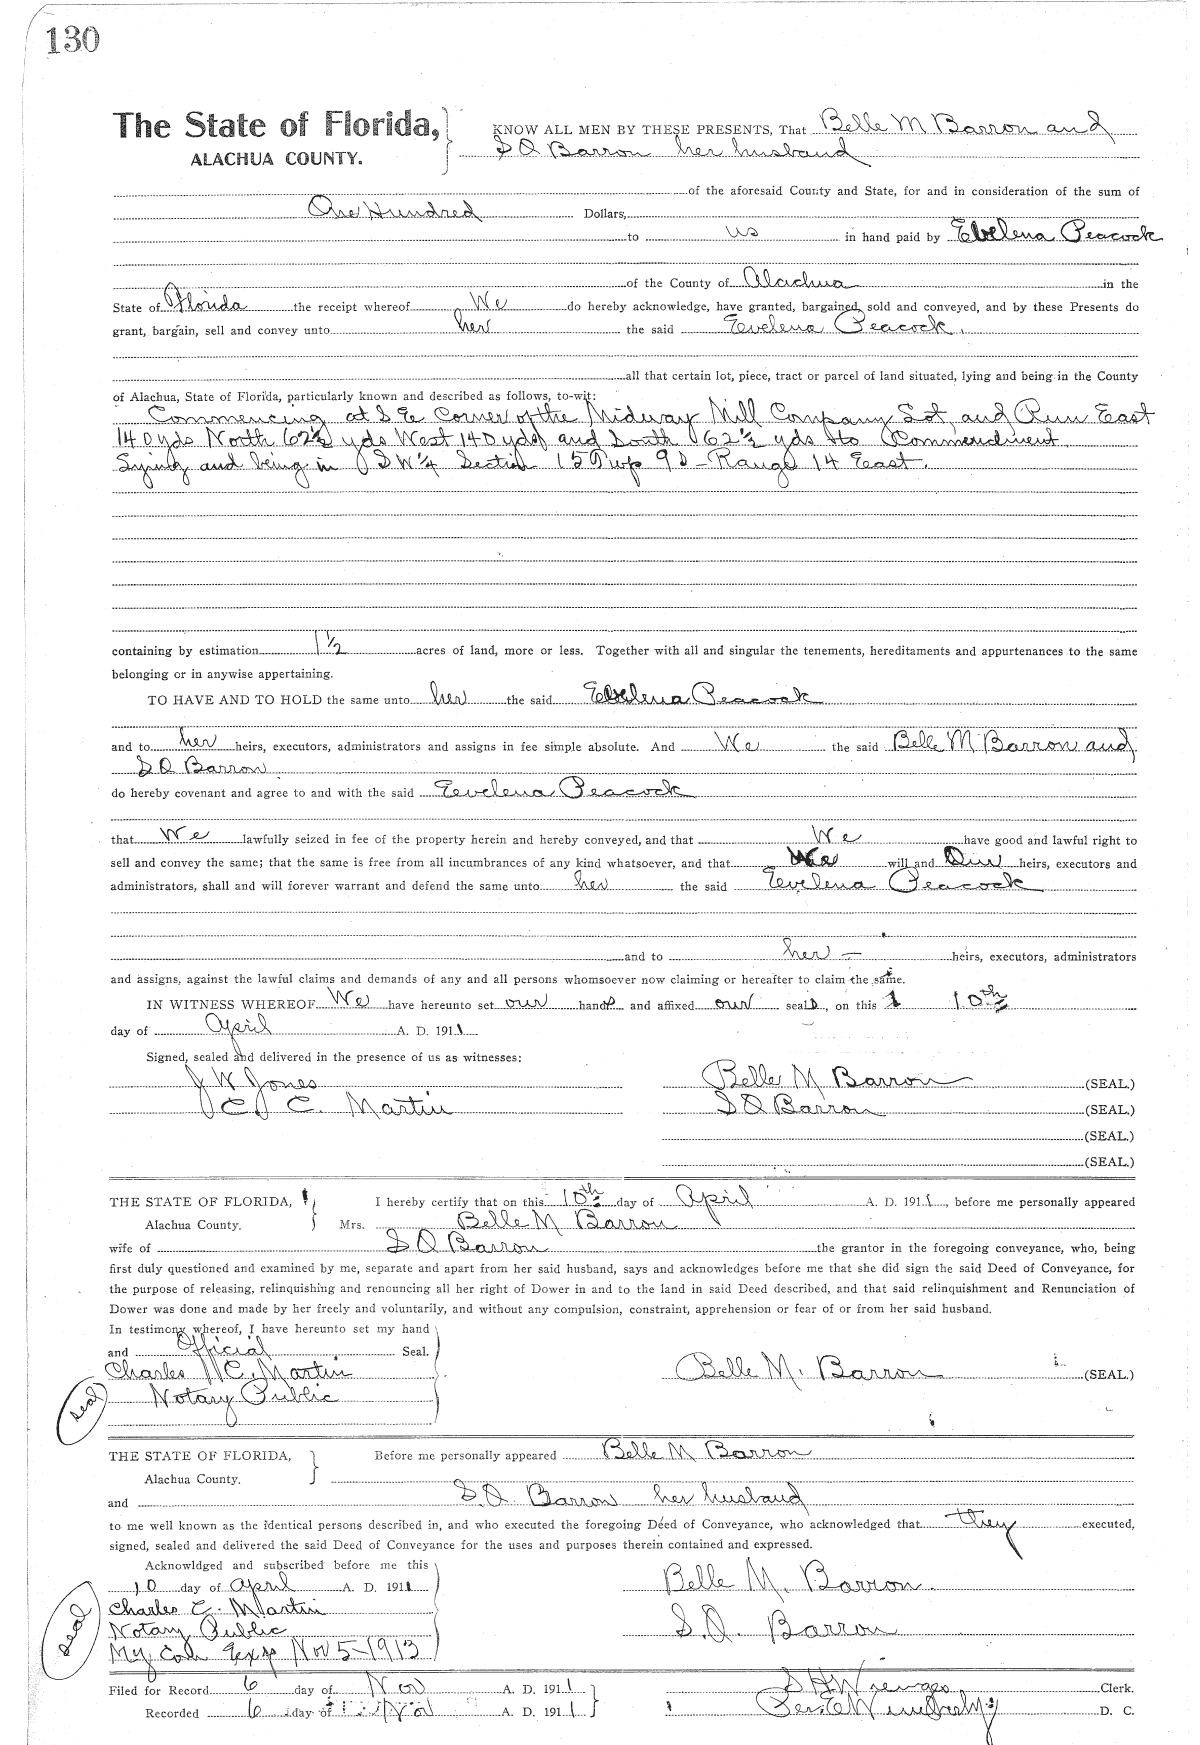 130
The State of Florida, KNOW ALL MEN BY THESE PRESENTS, That Belle M Barron and
ALACHUA COUNTY. S Q Barron her husband
of the aforesaid County and State, for and in consideration of the sum of
One Hundred Dollars,
to us in hand paid by Evelena Peacock
of the County of Alachua in the
State of Florida the receipt whereof We do hereby acknowledge, have granted, bargained, sold and conveyed, and by these Presents do
grant, bargain, sell and convey unto her the said Evelena Peacock.
all that certain lot, piece, tract or parcel of land situated, lying and being in the County
of Alachua, State of Florida, particularly known and described as follows, to-wit:
Commencing at S E Corner of the Midway Mill Company Lot, and Run East
140 yds North 62½ yds West 140 yds and South 62½ yds to Commencment
Lying and being in SW¼ Section 15 Twp 9 S - Range 14 East.
containing by estimation 1½ acres of land, more or less. Together with all and singular the tenements, hereditaments and appurtenances to the same
belonging or in anywise appertaining.
TO HAVE AND TO HOLD the same unto her the said Evelena Peacock
and to her heirs, executors, administrators and assigns in fee simple absolute. And We the said Belle M Barron and
S Q Barron
do hereby covenant and agree to and with the said Evelena Peacock
that We lawfully seized in fee of the property herein and hereby conveyed, and that We have good and lawful right to
sell and convey the same; that the same is free from all incumbrances of any kind whatsoever, and that We will and Our heirs, executors and
administrators, shall and will forever warrant and defend the same unto her the said Evelena Peacock
and to her — heirs, executors, administrators
and assigns, against the lawful claims and demands of any and all persons whomsoever now claiming or hereafter to claim the same.
IN WITNESS WHEREOF We have hereunto set our hands and affixed our seals, on this 10th
day of April A. D. 1911
Signed, sealed and delivered in the presence of us as witnesses:
J W Jones Belle M Barron (SEAL.)
C C. Martin S Q Barron (SEAL.)
(SEAL.)
(SEAL.)
THE STATE OF FLORIDA, I hereby certify that on this 10th day of April A. D. 1911, before me personally appeared
Alachua County. Mrs. Belle M Barron
wife of S Q Barron the grantor in the foregoing conveyance, who, being
first duly questioned and examined by me, separate and apart from her said husband, says and acknowledges before me that she did sign the said Deed of Conveyance, for
the purpose of releasing, relinquishing and renouncing all her right of Dower in and to the land in said Deed described, and that said relinquishment and Renunciation of
Dower was done and made by her freely and voluntarily, and without any compulsion, constraint, apprehension or fear of or from her said husband.
In testimony whereof, I have hereunto set my hand
and Official Seal.
Charles C. Martin Belle M. Barron (SEAL.)
Seal Notary Public
THE STATE OF FLORIDA, Before me personally appeared Belle M Barron
Alachua County.
and S. Q. Barron her husband
to me well known as the identical persons described in, and who executed the foregoing Deed of Conveyance, who acknowledged that they executed,
signed, sealed and delivered the said Deed of Conveyance for the uses and purposes therein contained and expressed.
Acknowldged and subscribed before me this
10 day of April A. D. 1911 Belle M. Barron.
Seal Charles C. Martin
Notary Public S. Q. Barron
My Com Exp Nov 5-1913
Filed for Record 6 day of Nov A. D. 1911 S H Wienges Clerk.
Recorded 6 day of Nov A. D. 1911 Per D. C.